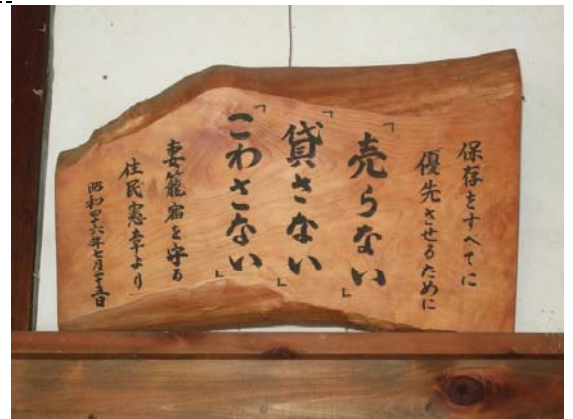 保存をすべてに
優先させるために
「売らない」
「貸さない」
「こわさない」
妻籠宿を守る
住民憲章より
昭和四十六年七月二十五日